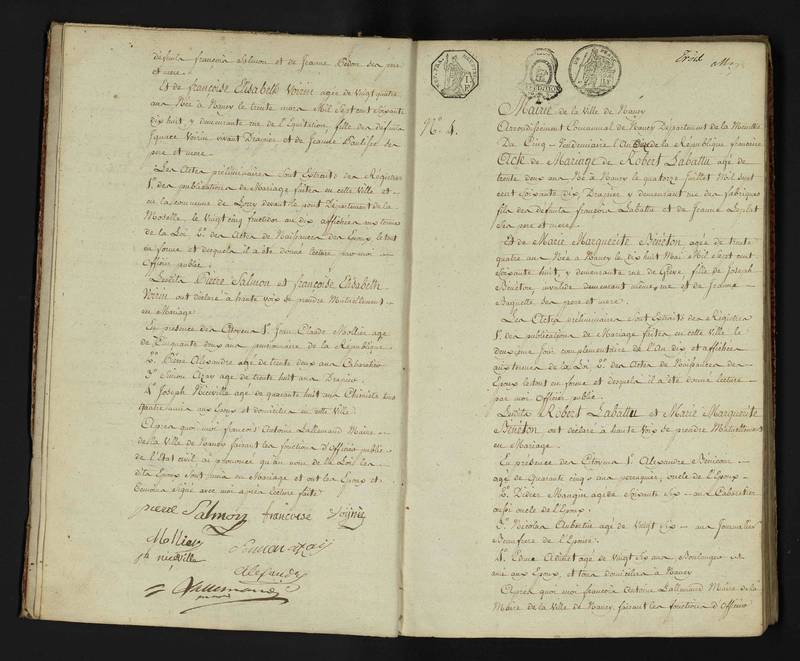 défunts françois Salmon et de Jeanne Pedon ses pere
et mere
Et de françoise Elisabeth Voirin agée de vingt quatre
ans Née à Nancy le trente mars Mil Sept cent Soixante
dix huit, y demeurante rue de l'Equitation, fille des défunts
Ignace Voirin vivant Drapier et de Jeanne Baptiste ses
pere et mere
Les Actes préliminaires sont Extraits des Registres
1° des publications de Mariage faites en cette Ville et
en la commune de devant le pont Département de la
Moselle, le Vingt cinq fructidor an dix affichées aux termes
de la Loi. 2° des Actes de Naissances des Epoux, le tout
en forme et desquels il a été donné lecture par moi
Officier public
Lesdits Pierre Salmon et françoise Elisabeth
Voirin ont déclaré à haute voix se prendre Mutuellement
en Mariage
En présence des Citoyens 1° Jean Claude Mollier agé
de Cinquante deux ans pensionnaire de la République
2° Pierre Alexandre agé de trente deux ans Cabaretier
3° Simon agé de trente huit ans Drapier
4° Joseph Nieeville agé de quarante huit ans Chimiste
aux Epoux et domiciliés en cette Ville
Après quoi moi françois Antoine Lallemand Maire
de la Ville de Nancy faisant les fonctions d'Officier public
de l'Etat civil ai prononcé qu'au nom de la Loi les
dits Epoux sont unis en Mariage et ont les Epoux et
témoins signé avec moi après lecture faite
pierre Salmon françoise
Mollier Simon
nieeville
Alexandre
Lallemand
maire
N°. 4.
Mairie de la Ville de Nancy
Arrondissement Communal de Nancy Département de la Meurthe
Du Cinq Vendémiaire l'An onze de la République françoise
Acte de Mariage de Robert Labattu agé de
trente deux ans Né à Nancy le quatorze Juillet Mil Sept
cent Soixante dix, Drapier y demeurant rue des fabriques
fils des défunts françois Labattu et de Jeanne
ses pere et mere
Et de Marie Marguerite Bénéton agée de trente
quatre ans Née à Nancy le dix huit Mai Mil Sept cent
Soixante huit, y demeurante rue de Grève, fille de Joseph
Bénéton, invalide demeurant même rue et de Jeanne
Baquette ses pere et mere
Les Actes préliminaires sont Extraits des Registres
1° des publications de Mariage faites en cette Ville le
deuxieme jour complementaire de l'An dix et affichées
aux termes de la Loi, 2° des Actes de Naissances des
Epoux le tout en forme et desquels il a été donné lecture
par moi Officier public
Lesdits Robert Labattu et Marie Marguerite
Bénéton ont déclaré à haute voix se prendre Mutuellement
en Mariage
En présence des Citoyens 1° Alexandre
agé de Quarante cinq ans perruquier, oncle de l'Epoux
2° Didier Mangin agé de Soixante Six ans Cabaretier
aussi oncle de l'Epoux
3° Nicolas Aubertin agé de Vingt dix ans Journallier
Beaufrere de l'Epouse
4° agé de Vingt Six ans Boulanger
ami aux Epoux, et tous domiciliés à Nancy
Après quoi moi françois Antoine Lallemand Maire de la
Mairie de la Ville de Nancy, faisant les fonctions d'Officier